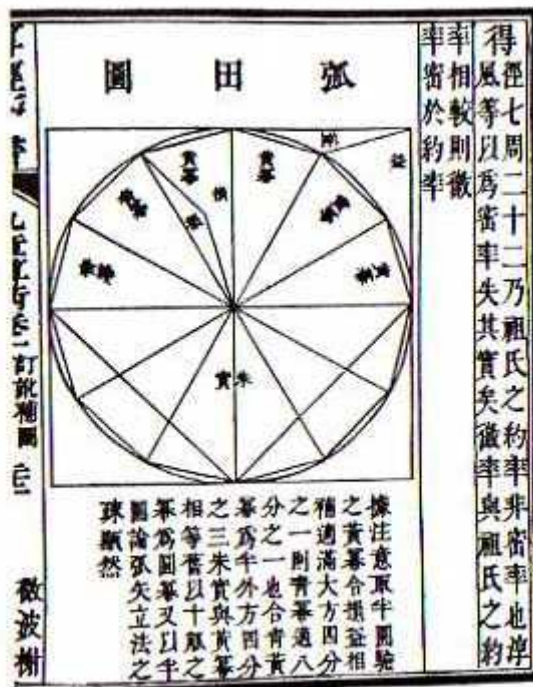 得
徑七周二十二乃祖氏之約率非密率也淳
風等以爲密率失其實矣徽率與祖氏之約
率相較則徽
率密於約率
弧田圖
益
黃冪
黃冪
朱實
據注意取半圓驗
之黃冪合損益相
補適滿大方四分
之一則青冪適八
分之一也合青黃
冪爲半外方四分
之三朱實與黃冪
相等舊以十觚之
冪爲圓冪又以半
圓論弧矢立法之
疎顯然
訂訛補圖
微波榭